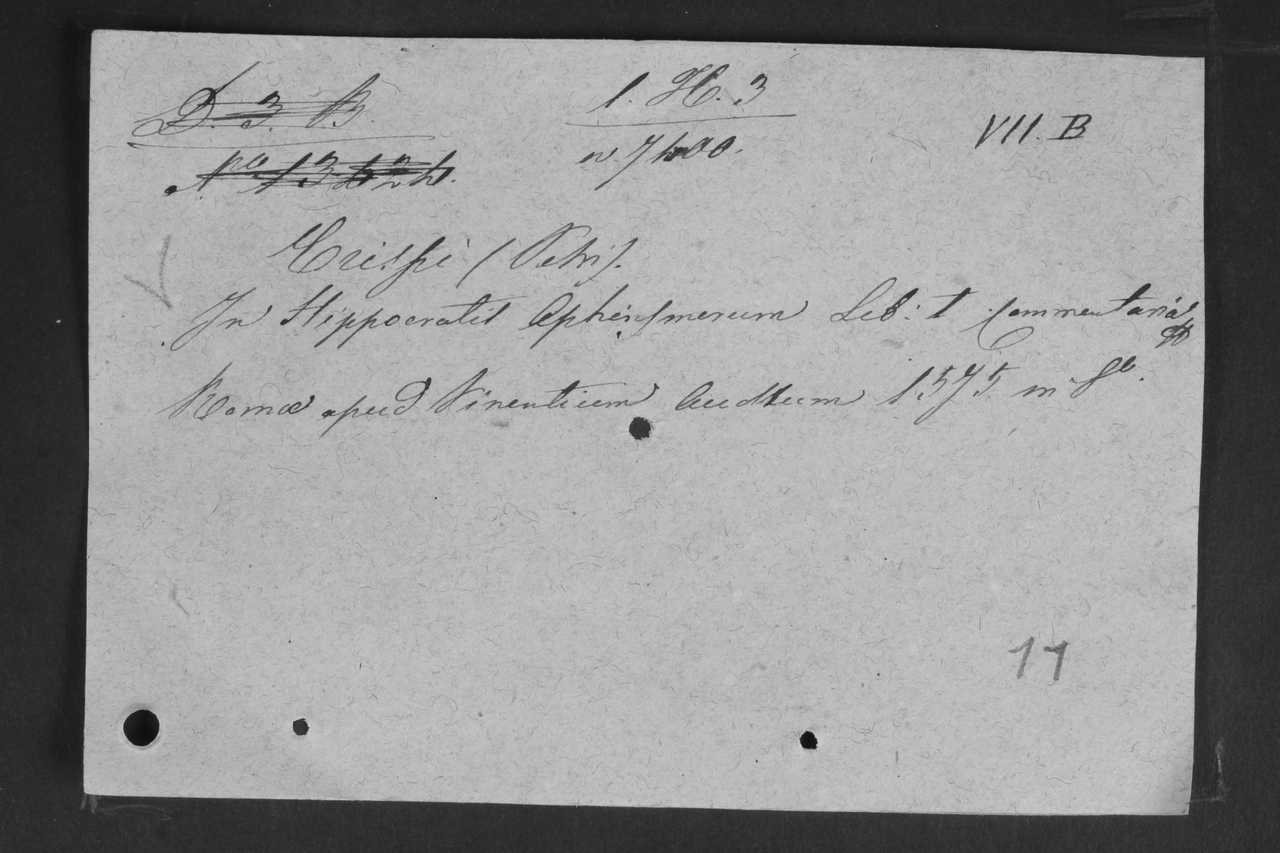 D. 3. B. 1. H. 3 VII. B
No 13424. n. 7400.
Crispi (Petri).
In Hippocratis Aphorismorum Lib: 1 Commentaria
Romæ apud Vincentium Accoltum 1575 in 8o.
11